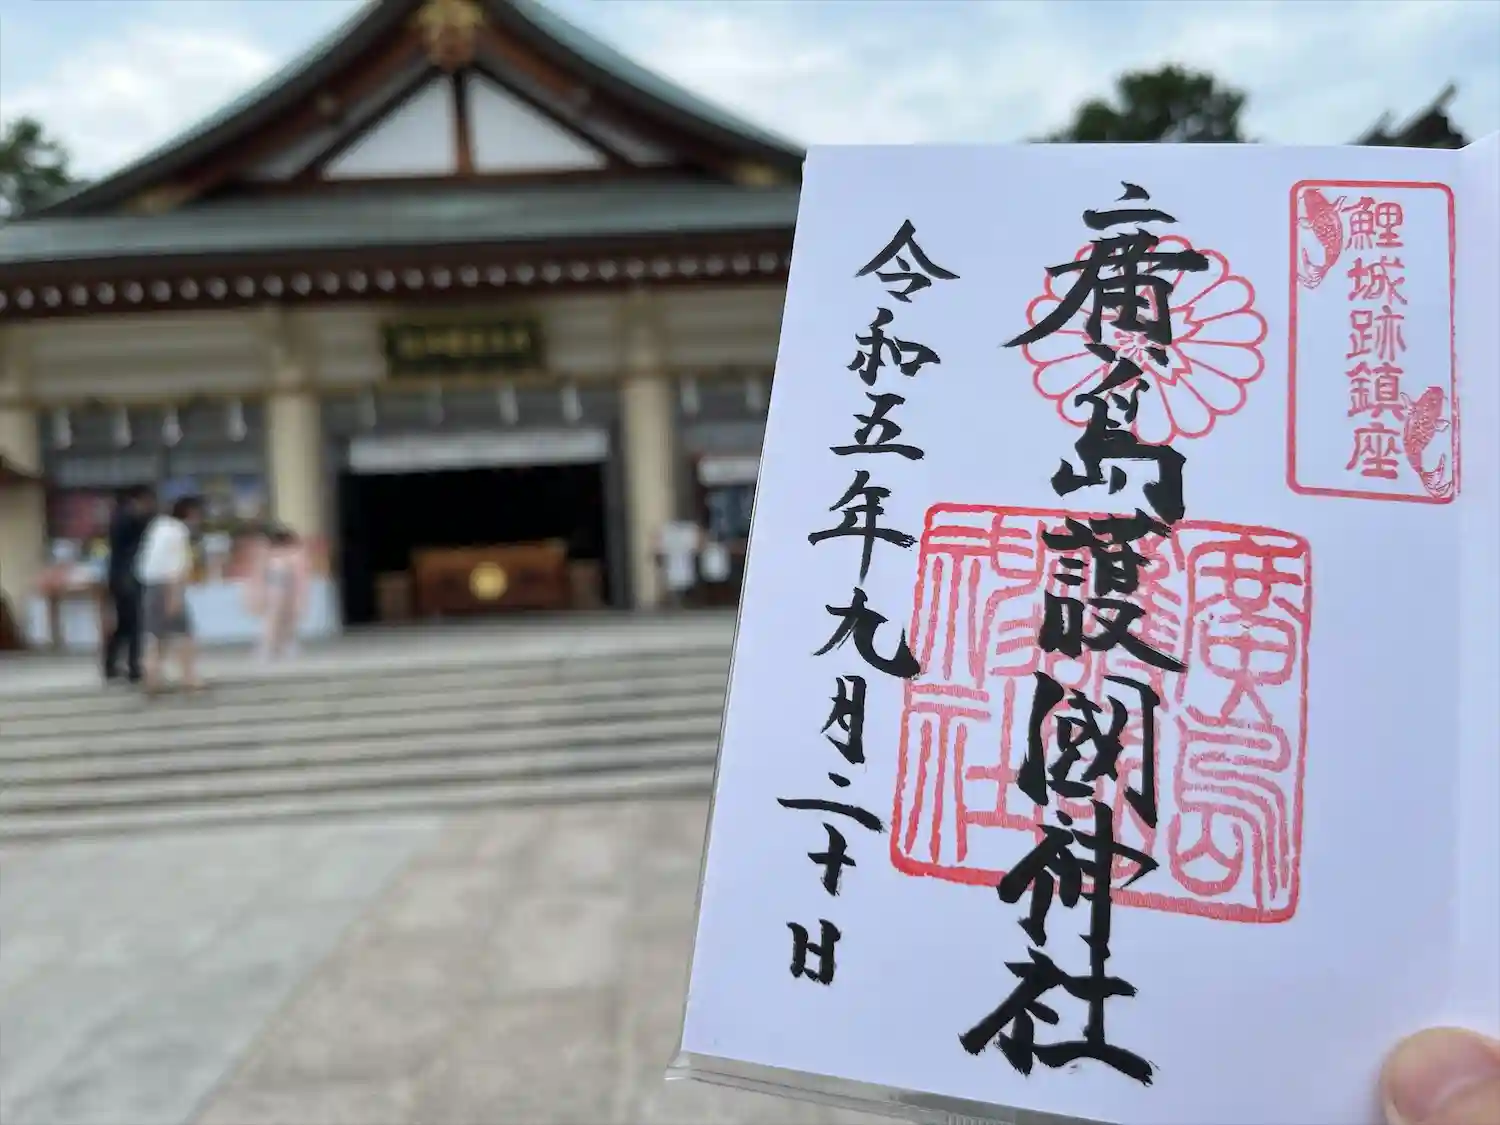 鯉城跡鎮座
廣島護國神社
廣島護國神社
令和五年九月二十日